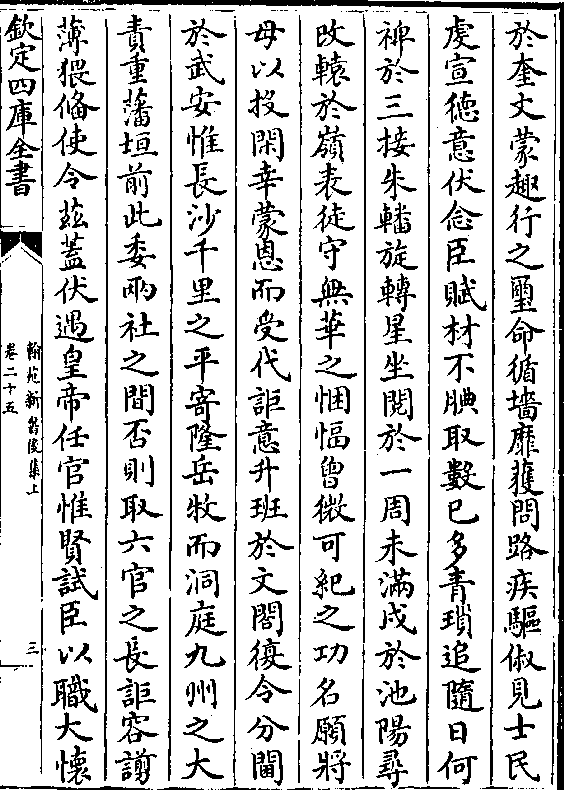 於奎文蒙趣行之璽命循墻靡獲問路疾驅俶見士民
虔宣德意伏念臣賦材不腆取數已多青瑣追隨日何
裨於三接朱轓旋轉星坐閲於一周未滿戍於池陽尋
改轅於嶺表徒守無華之悃愊曾微可紀之功名願將
母以投閑幸蒙恩而受代詎意升班於文閣復令分閫
於武安惟長沙千里之平寄隆岳牧而洞庭九州之大
責重藩垣前此委兩社之間否則取六官之長詎容謭
薄猥偹使令兹蓋伏遇皇帝任官惟賢試臣以職大懷
欽定四庫全書
翰苑新書後集上
卷二十五
三